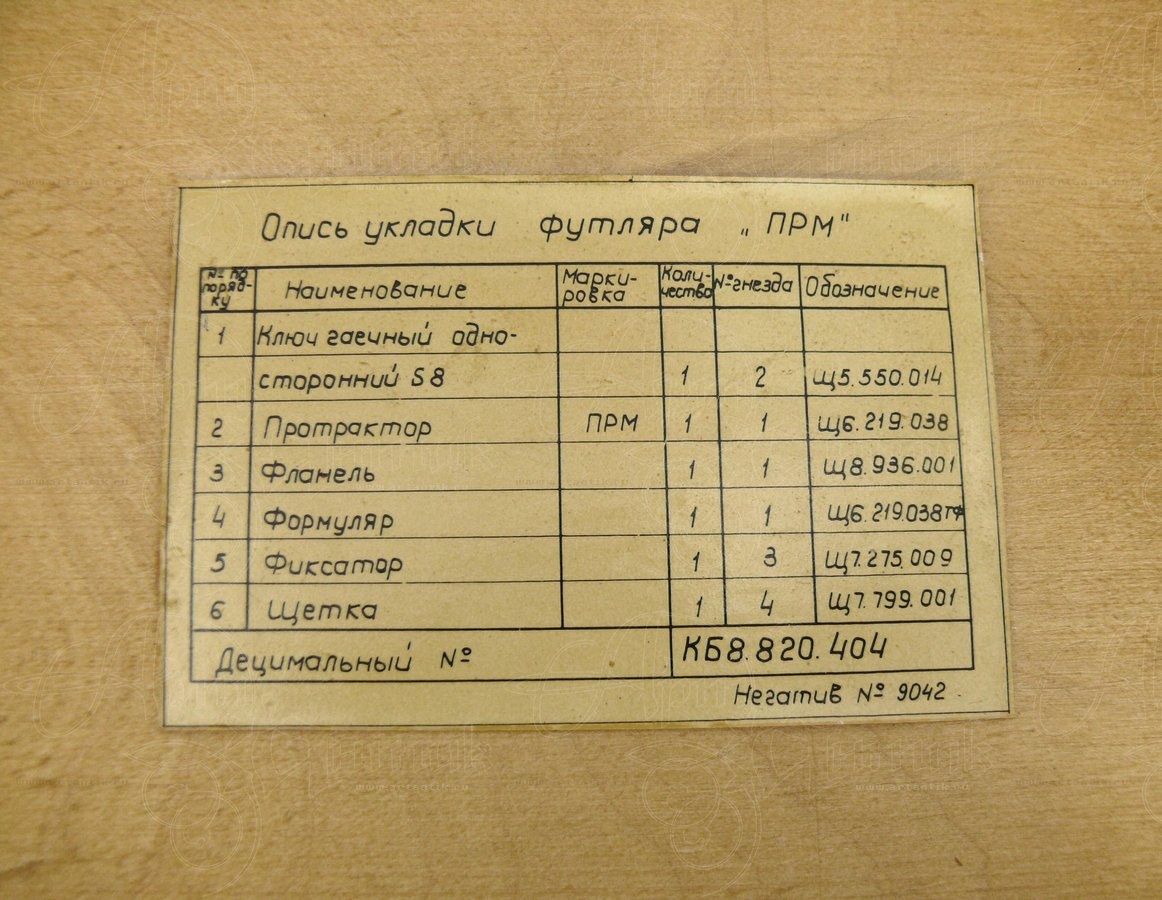 Опись укладки футляра „ПРМ"
№ по поряд-ку Наименование Марки-ровка Коли-чество № гнезда Обозначение
1 Ключ гаечный одно-
сторонний S8 1 2 Щ5.550.014
2 Протрактор ПРМ 1 1 Щ6.219.038
3 Фланель 1 1 Щ8.936.001
4 Формуляр 1 1 Щ6.219.038ТФ
5 Фиксатор 1 3 Щ7.275.009
6 Щетка 1 4 Щ7.799.001
Децимальный № КБ8.820.404
Негатив № 9042